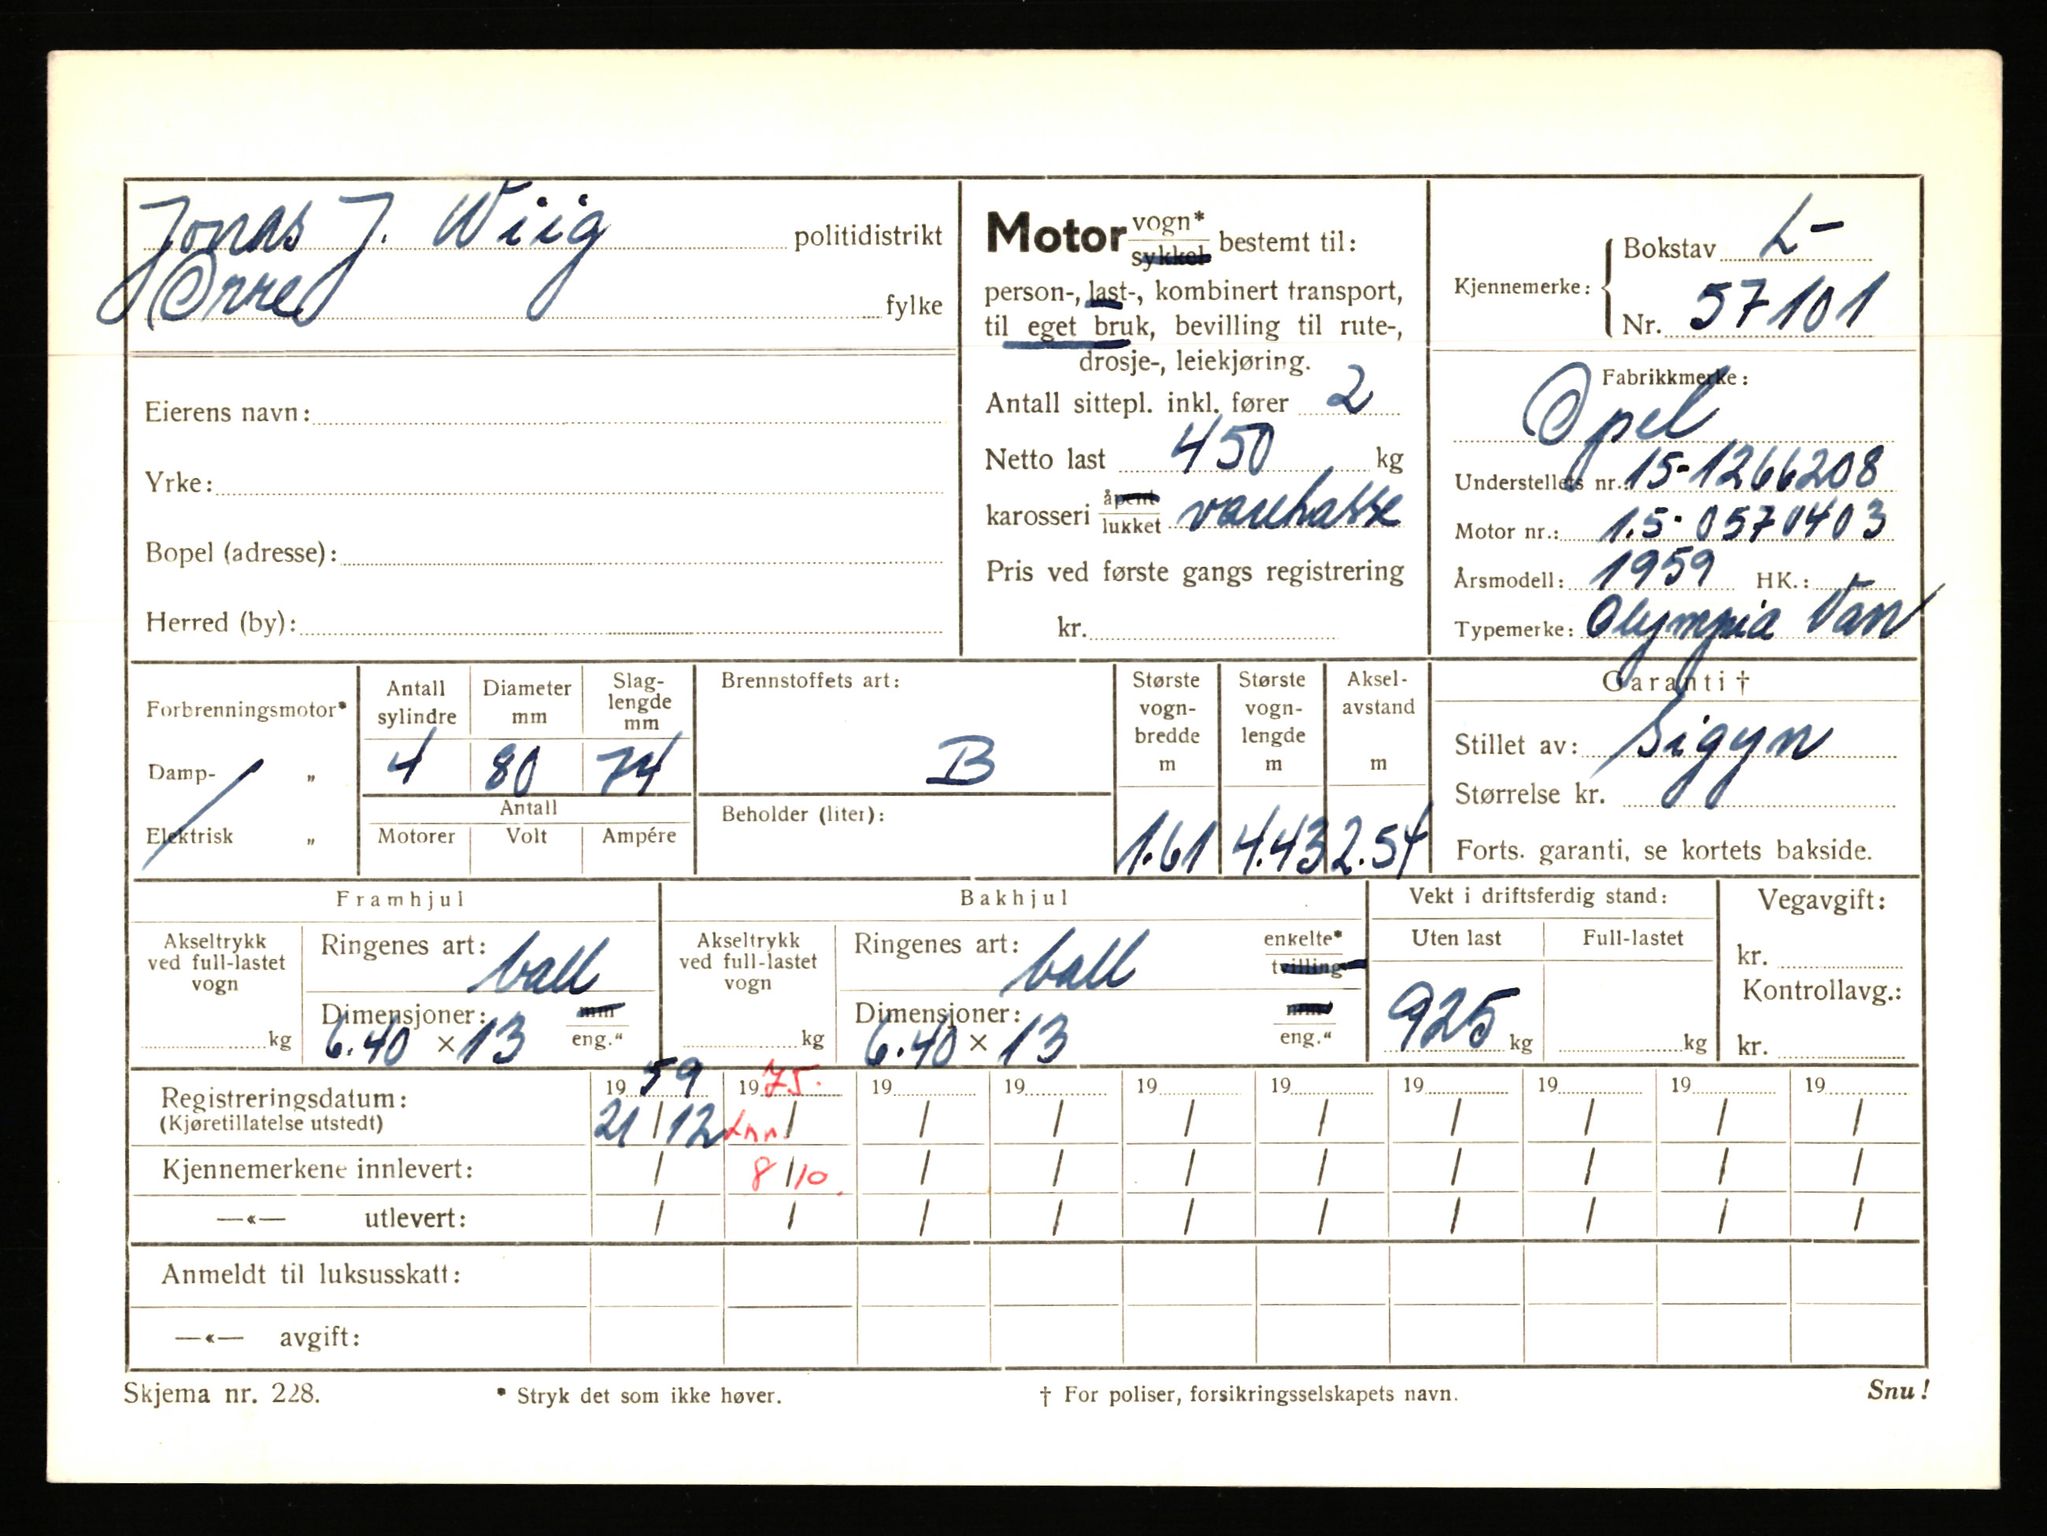 Jonas J. Wiig politidistrikt
Orre fylke
Eierens navn:
Yrke:
Bopel (adresse):
Herred (by):
Motor vogn* sykkel bestemt til:
person-, last-, kombinert transport,
til eget bruk, bevilling til rute-,
drosje-, leiekjøring.
Antall sittepl. inkl. fører 2
Netto last 450 kg
karosseri åpent lukket varekasse
Pris ved første gangs registrering
kr.
Kjennemerke: Bokstav L-
Nr. 57101
Fabrikkmerke:
Opel
Understellets nr. 15-1266208
Motor nr.: 1.5-0570403
Årsmodell: 1959 HK.: -
Typemerke: Olympia Van
Forbrenningsmotor*
Damp- "
Elektrisk "
Antall sylindre Diameter mm Slaglengde mm
4 80 74
Antall
Motorer Volt Ampére
Brennstoffets art:
B
Beholder (liter):
Største vognbredde m
1.61
Største vognlengde m
4.43
Akselavstand m
2.54
Garanti †
Stillet av: Sigyn
Størrelse kr.
Forts. garanti, se kortets bakside.
Framhjul
Akseltrykk ved full-lastet vogn
kg
Ringenes art: ball
Dimensjoner: mm
6.40 × 13 eng."
Bakhjul
Akseltrykk ved full-lastet vogn
kg
Ringenes art: ball enkelte* tvilling
Dimensjoner: mm
6.40 × 13 eng."
Vekt i driftsferdig stand:
Uten last Full-lastet
925 kg kg
Vegavgift:
kr.
Kontrollavg.:
kr.
Registreringsdatum: 19 59 19 75. 19 19 19 19 19 19 19 19
(Kjøretillatelse utstedt) 21 / 12 / / / / / / / / /
Kjennemerkene innlevert: / 8/10. / / / / / / / /
—«— utlevert: / / / / / / / / / /
Anmeldt til luksusskatt:
—«— avgift:
Skjema nr. 228. * Stryk det som ikke høver. † For poliser, forsikringsselskapets navn. Snu!